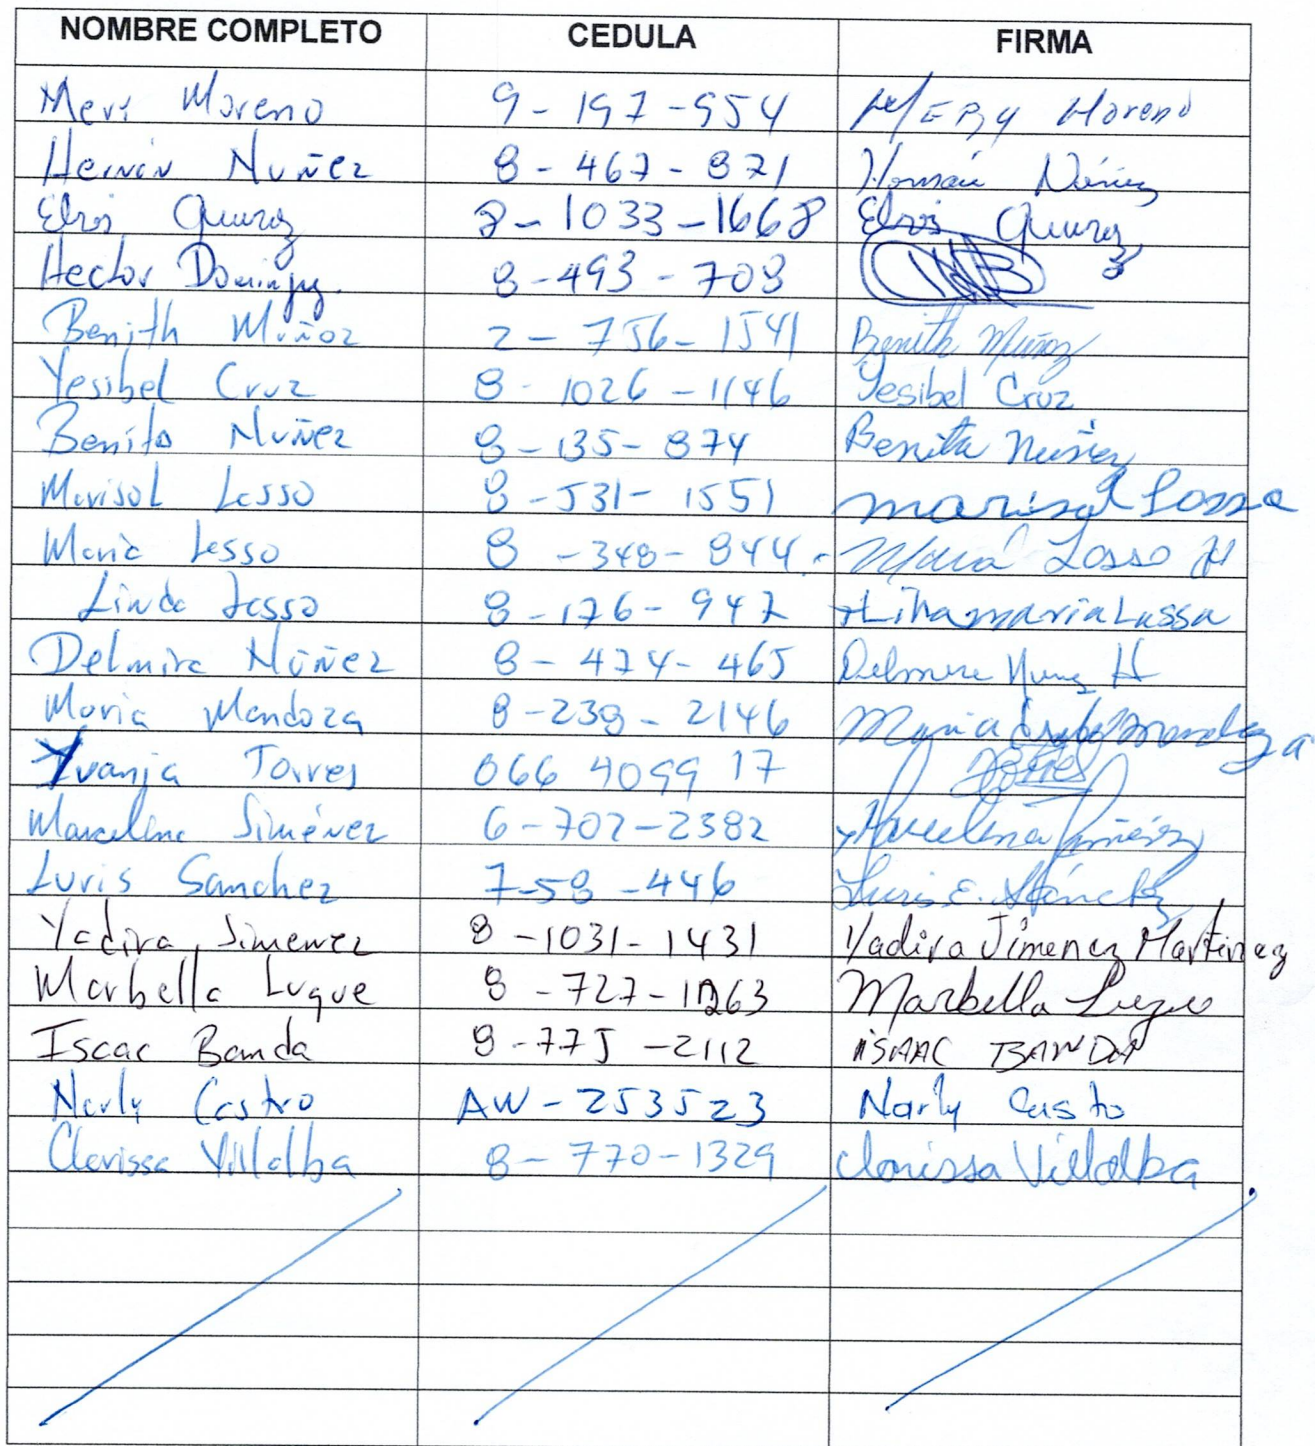 NOMBRE COMPLETO CEDULA FIRMA
Meri Moreno 9-197-954 MERY Moreno
Hernán Nuñez 8-467-871 Hernán Núñez
Elvis Quiroz 8-1033-1668 Elvis Quiroz
Hector 8-493-708
Benith Muñoz 2-756-1541 Benith Muñoz
Yesibel Cruz 8-1026-1146 Yesibel Cruz
Benito Nuñez 8-135-874 Benita Nuñez
Marisol Lasso 8-531-1551 marisol Lasso
Maria Lasso 8-348-844 Maria Lasso H
Linda Lasso 8-176-947
Delmira Núñez 8-474-465 H
Maria Mendoza 8-238-2146 Maria Mendoza
Yvanja Torres 066 4099 17 Torres
Marcelina Jiménez 6-702-2382 Marcelina Jiménez
Luris Sanchez 7-58-446 Luris E. Sánchez
Yadira Jimenez 8-1031-1431 Yadira Jimenez Martinez
Marbella Luque 8-727-1263 Marbella Luque
Isaac Banda 8-775-2112 ISAAC BANDA
Narly Castro AW-253523 Narly Casto
Clarissa Villalba 8-770-1329 Clarissa Villalba